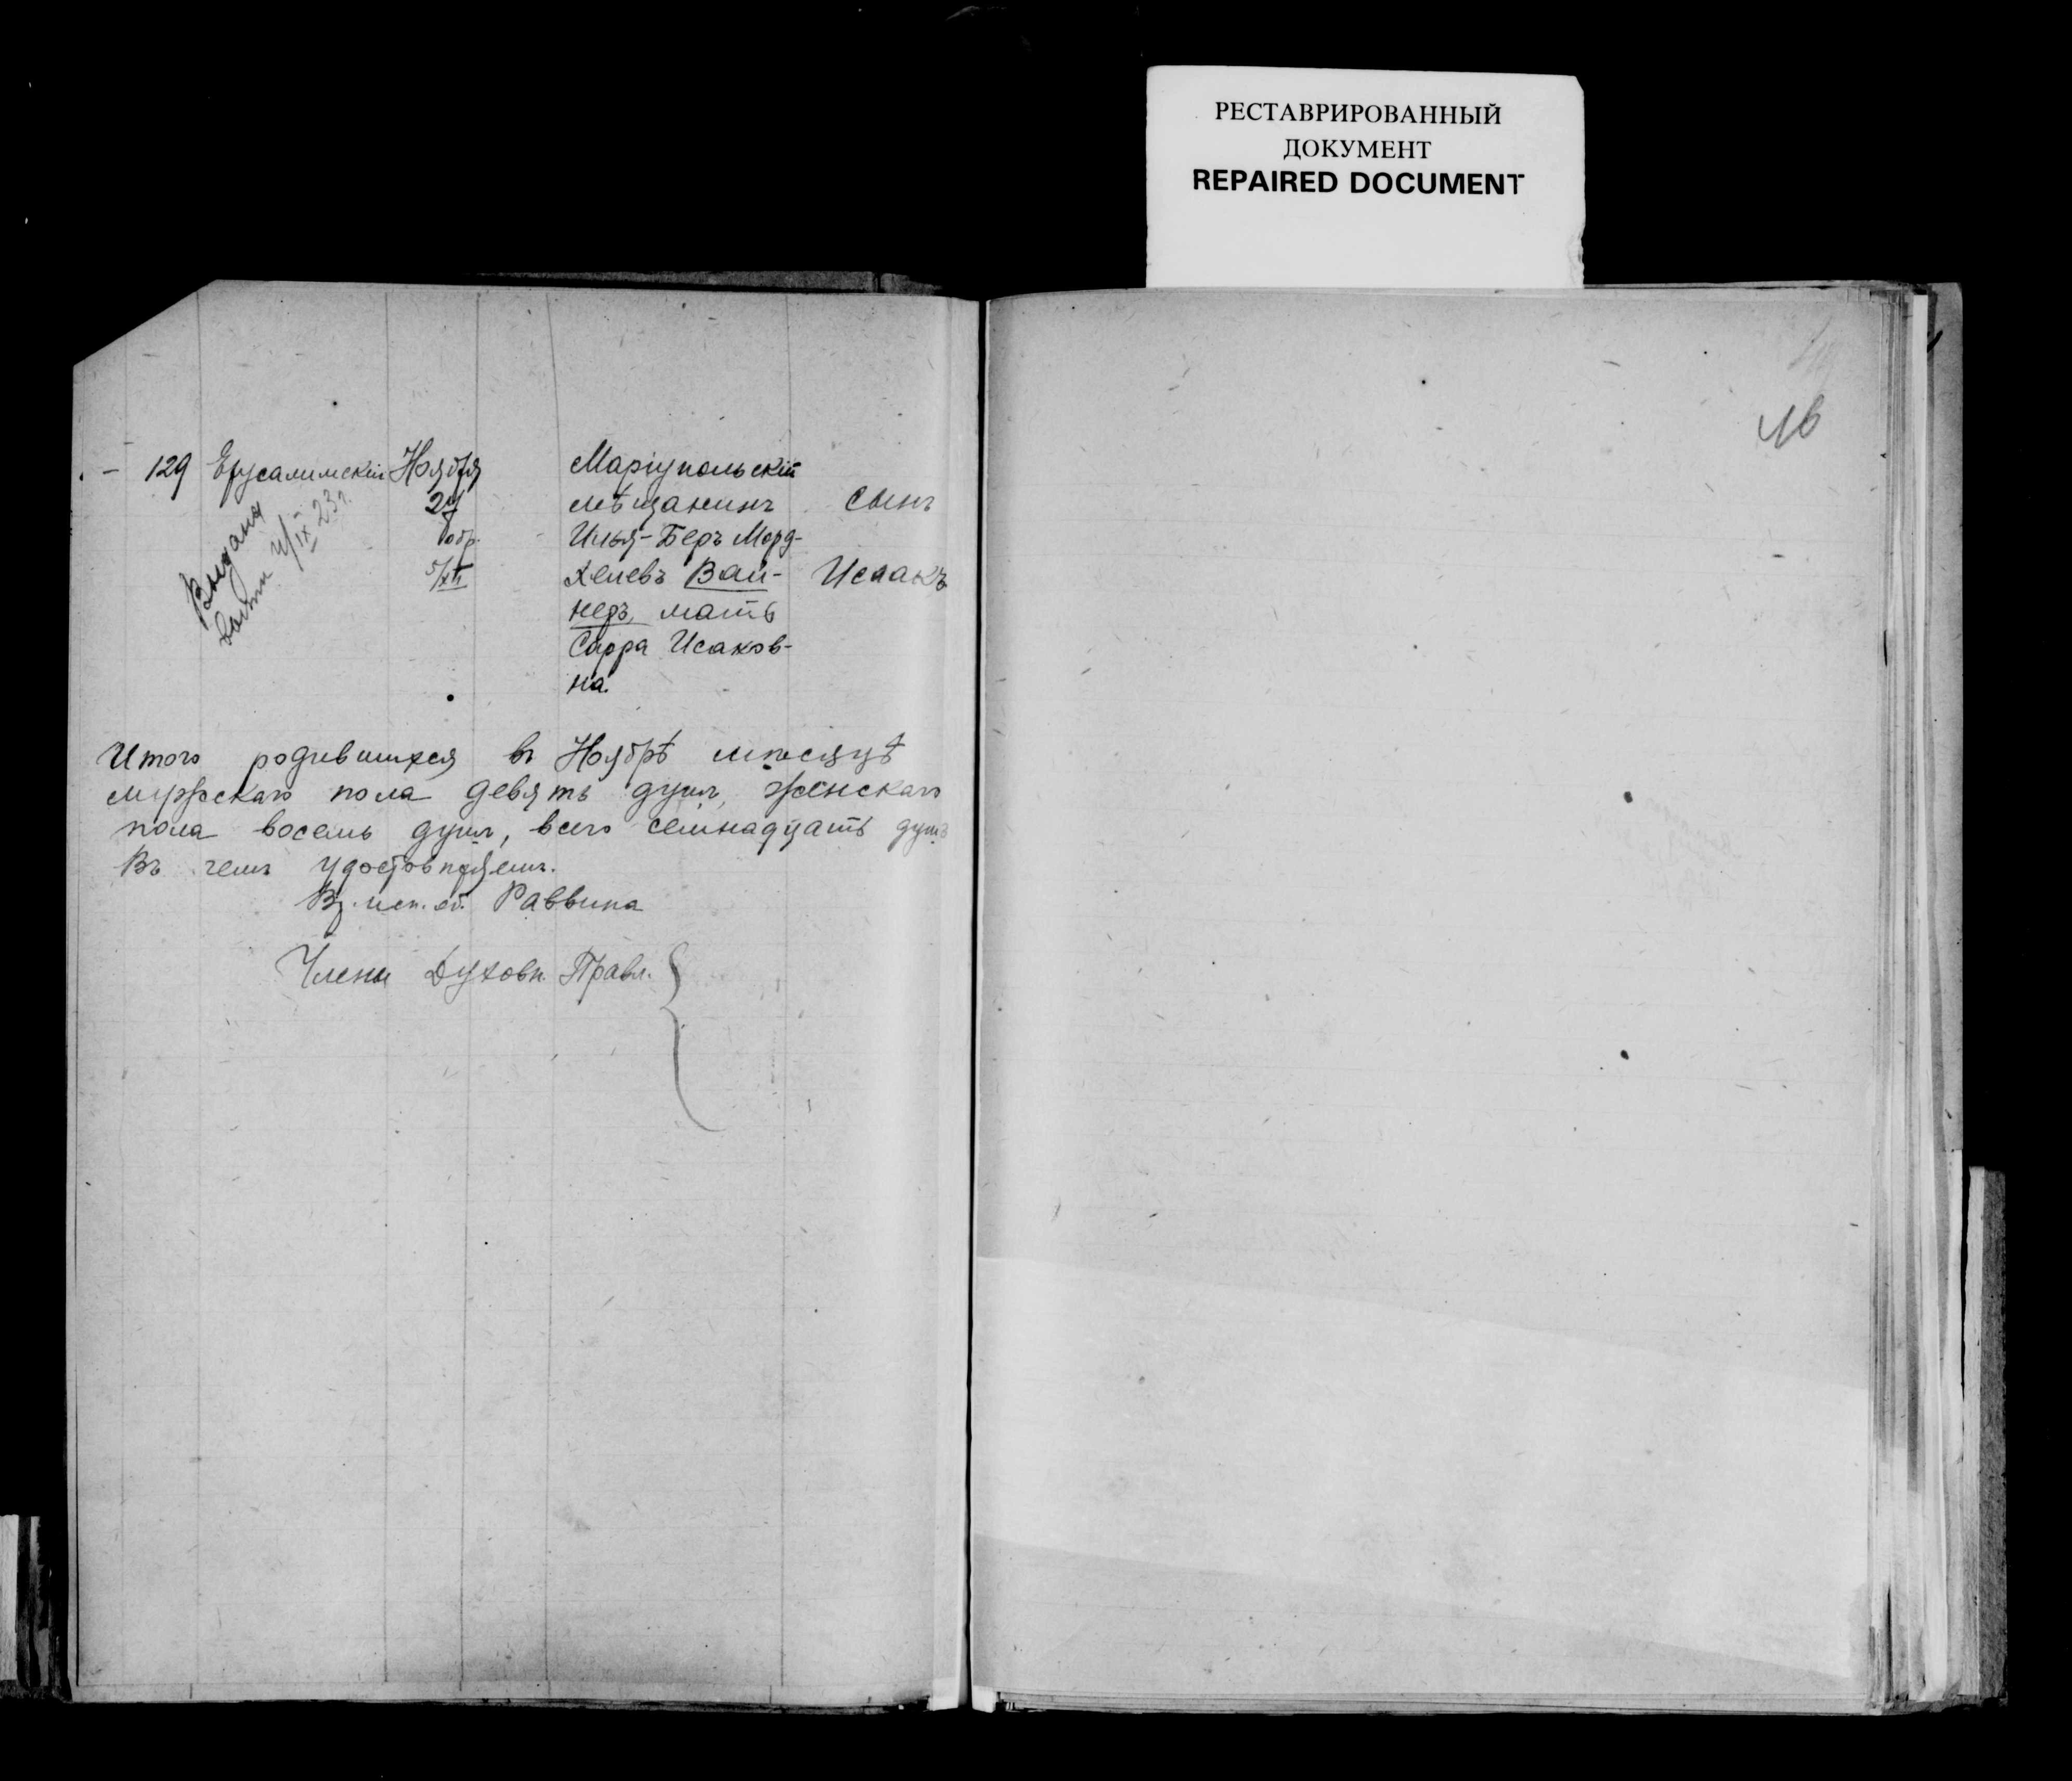 РЕСТАВРИРОВАННЫЙ
ДОКУМЕНТ
REPAIRED DOCUMENT
16
- 129 Ерусалимскій Ноября Маріупольскій
мѣщанинъ сынъ
обр. Илья-Беръ Морд-
5/XII хелевъ Вай- Исаакъ
неръ, мать
Сарра Исаков-
на.
Выдана
IX 23 г.
Итого родившихся въ Ноябрѣ мѣсяцѣ
мужскаго пола девять душъ, женскаго
пола восемь душъ, всего семнадцать душъ
Въ чемъ удостовѣряемъ.
Вр. исп. об. Раввина
Члены Духовн. Правл.